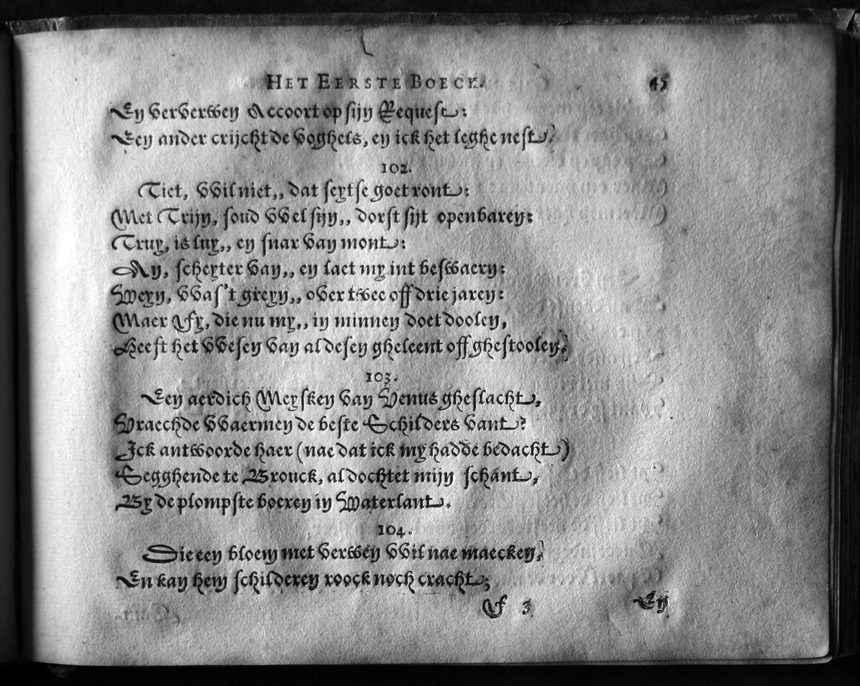 HET EERSTE BOECK. 45
En ververwen Accoort op sijn Request:
Een ander crijcht de voghels, en ick het leghe nest.
102.
Tiet, VVil niet,, dat seytse goet ront:
Met Trijn, soud VVel sijn,, dorst sijt openbaren:
Truy, is luy,, en snar van mont:
Ay, scheyter van,, en laet my int beswaern:
Weyn, VVas't greyn,, over twee off drie jaren:
Maer Yfy, die nu my,, in minnen doet doolen,
Heeft het VVesen van al desen gheleent off ghestoolen.
103.
Een aerdich Meysken van Venus gheslacht,
Vraechde VVaermen de beste Schilders vant?
Ick antwoorde haer (nae dat ick my hadde bedacht)
Segghende te Brouck, al dochtet mijn schant,
By de plompste boeren in Waterlant.
104.
Die een bloem met verwen VVil nae maecken,
En kan hem schilderen roock noch cracht;
F 3 En